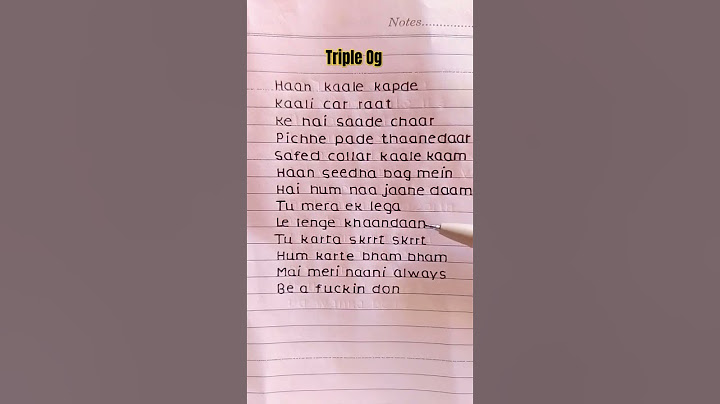 Notes................
Triple Og
Haan kaale kapde
Kaali car raat
Ke hai saade chaar
Pichhe pade thaanedaar
Safed collar kaale kaam
Haan seedha bag mein
Hai hum naa jaane daam
Tu mera ek lega
Le lenge khaandaan
Tu karta skrrt skrrt
Hum karte bham bham
Mai meri naani always
Be a fuckin don